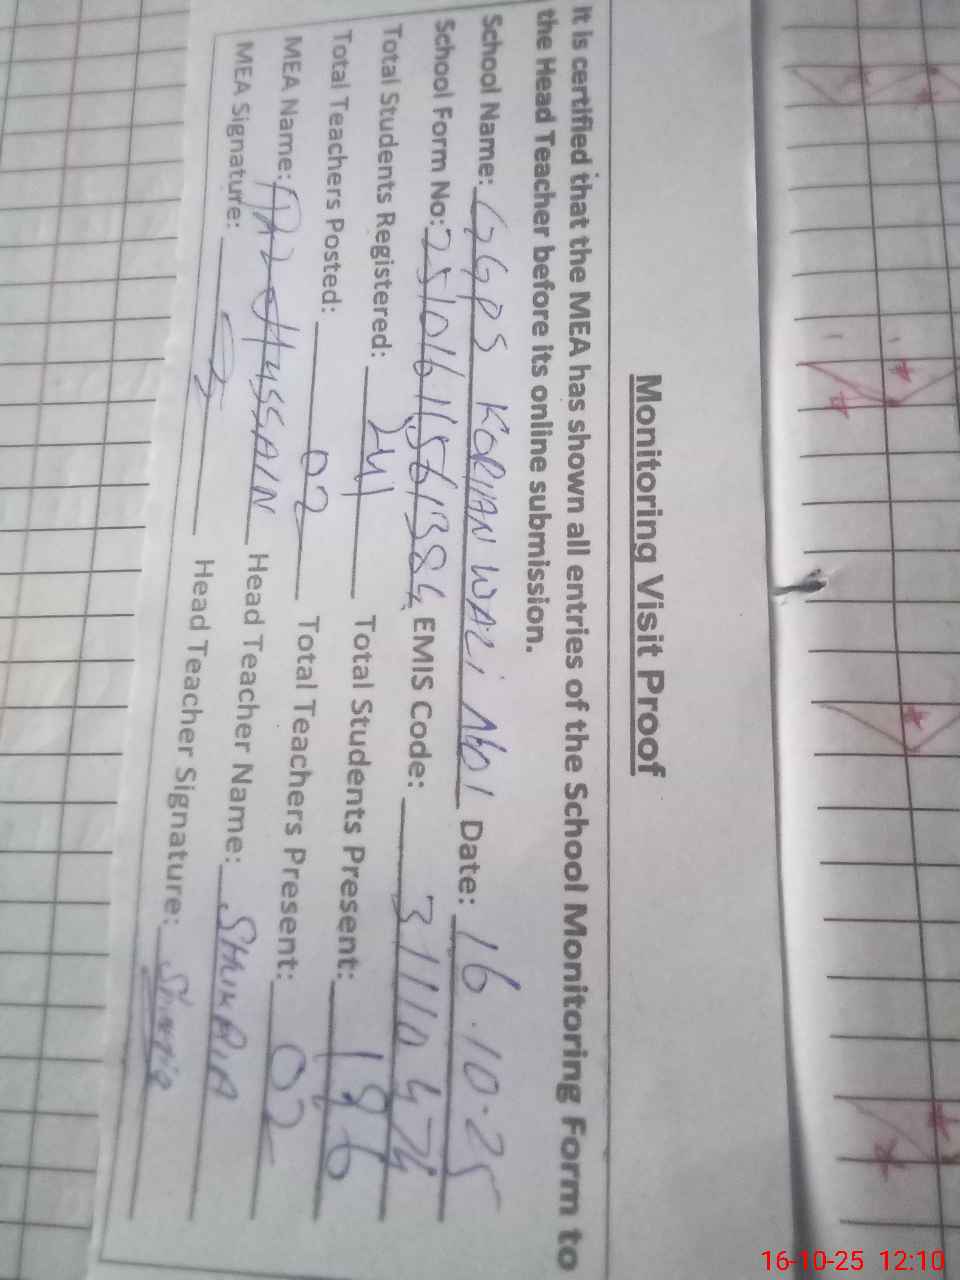 Monitoring Visit Proof
It is certified that the MEA has shown all entries of the School Monitoring Form to
the Head Teacher before its online submission.
School Name: GGPS KORIAN WALI No1 Date: 16.10.25
School Form No: 25101611561384 EMIS Code: 31110474
Total Students Registered: 241 Total Students Present: 196
Total Teachers Posted: 02 Total Teachers Present: 02
MEA Name: HUSSAIN Head Teacher Name: SHUKRIA
MEA Signature: Head Teacher Signature:
16-10-25 12:10